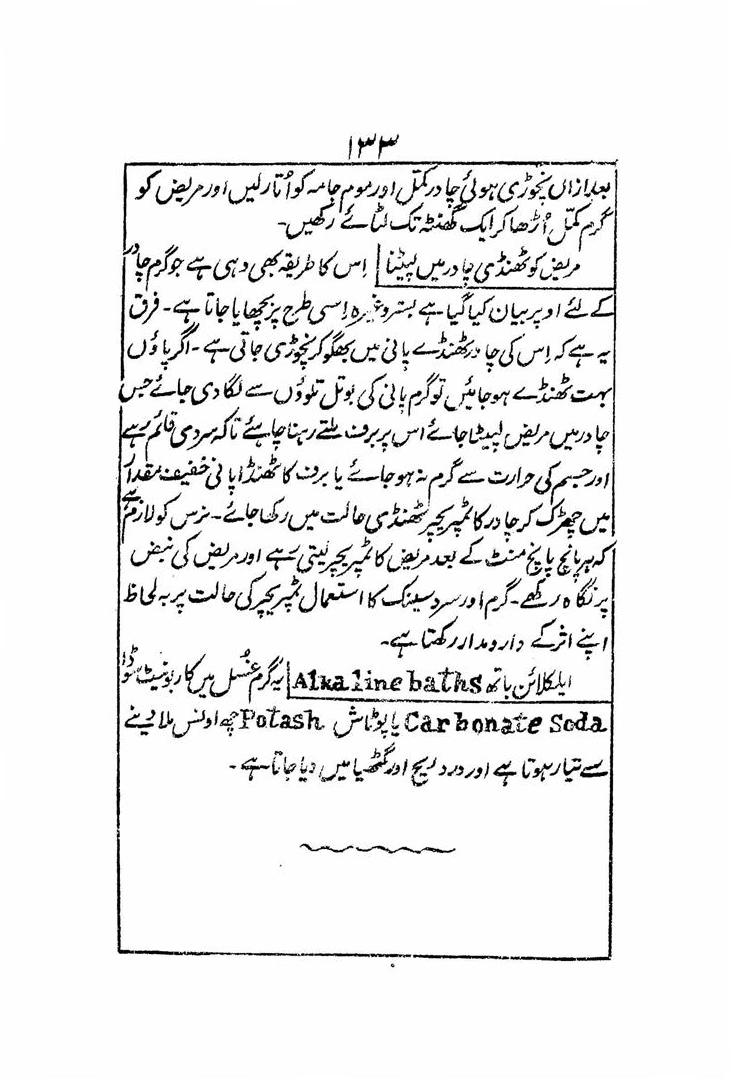 ۱۳۳
بعد ازاں نچوڑی ہوئی چادر کمل اور موم جامہ کو اُتار لیں اور مریض کو
گرم کمل اُڑھا کر ایک گھنٹہ تک لٹائے رکھیں۔
مریض کو ٹھنڈی چادر میں لپیٹنا اِس کا طریقہ بھی وہی ہے جو گرم چادر
کے لئے اوپر بیان کیا گیا ہے بستر وغیرہ اِسی طرح پر بچھایا جاتا ہے۔ فرق
یہ ہے کہ اِس کی چادر ٹھنڈے پانی میں بھگو کر نچوڑی جاتی ہے۔ اگر پاؤں
بہت ٹھنڈے ہو جائیں تو گرم پانی کی بوتل تلوؤں سے لگا دی جائے جس
چادر میں مریض لپیٹا جائے اس پر برف ملتے رہنا چاہئے تاکہ سردی قائم رہے
اور جسم کی حرارت سے گرم نہ ہو جائے یا برف کا ٹھنڈا پانی خفیف مقدار
میں چھڑک کر چادر کا ٹمپریچر ٹھنڈی حالت میں رکھا جائے۔ نرس کو لازم ہے
کہ ہر پانچ پانچ منٹ کے بعد مریض کا ٹمپریچر لیتی رہے اور مریض کی نبض
پر نگاہ رکھے۔ گرم اور سرد سینک کا استعمال ٹمپریچر کی حالت پر بہ لحاظ
اپنے اثر کے دار و مدار رکھتا ہے۔
ایلکلائن باتھ Alkaline baths یہ گرم غسل میں کاربونیٹ سوڈا
Carbonate Soda یا پوٹاش Potash چھ اونس ملا دینے
سے تیار ہوتا ہے اور درد ریح اور گٹھیا میں دیا جاتا ہے۔